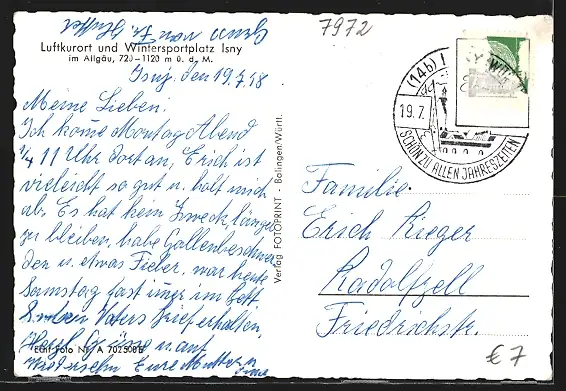 Gruß von Fr. Stuffel
7972
Luftkurort und Wintersportplatz Isny
im Allgäu, 720–1120 m ü. d. M.
Isny, den 19.7.58
Meine Lieben!
Ich kome Montag Abend
1/4 11 Uhr dort an, Erich ist
vieleicht so gut u. holt mich
ab. Es hat kein Zweck, länger
zu bleiben, habe Gallenbeschwer
den u. etwas Fieber, war heute
Samstag fast imer im Bett
Vaters Brief erhalten,
Herzl. Grüsse u. auf
Wiedersehn Eure Mutter u.
Oma
Echt Foto Nr. A 702500 B
Verlag FOTOPRINT - Balingen/Württ.
(14b) I
19.7.
SCHÖN ZU ALLEN JAHRESZEITEN
Familie
Erich Rieger
Radolfzell
Friedrichstr.
€ 7